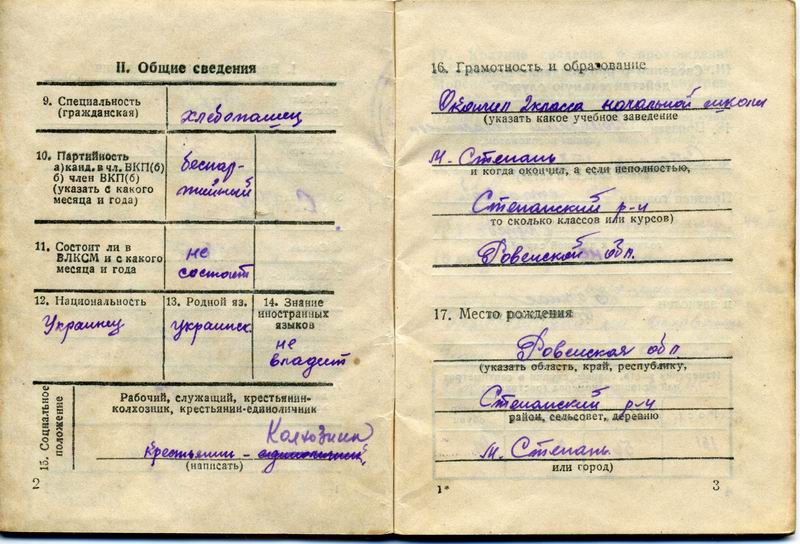 II. Общие сведения
9. Специальность
(гражданская)
хлебопашец
10. Партийность
а) канд. в чл. ВКП(б)
б) член ВКП(б)
(указать с какого
месяца и года)
беспар-
тийный
11. Состоит ли в
ВЛКСМ и с какого
месяца и года
не
состоит
12. Национальность
Украинец
13. Родной яз.
украинск.
14. Знание
иностранных
языков
не
владеет
15. Социальное
положение
Рабочий, служащий, крестьянин-
колхозник, крестьянин-единоличник
Колхозник
крестьянин - единоличник
(написать)
2
16. Грамотность и образование
Окончил 2 класса начальной школы
(указать какое учебное заведение
м. Степань
и когда окончил, а если неполностью,
Степанский р-н
то сколько классов или курсов)
Ровенской обл.
17. Место рождения
Ровенская обл
(указать область, край, республику,
Степанский р-н
район, сельсовет, деревню
м. Степань
или город)
1*
3